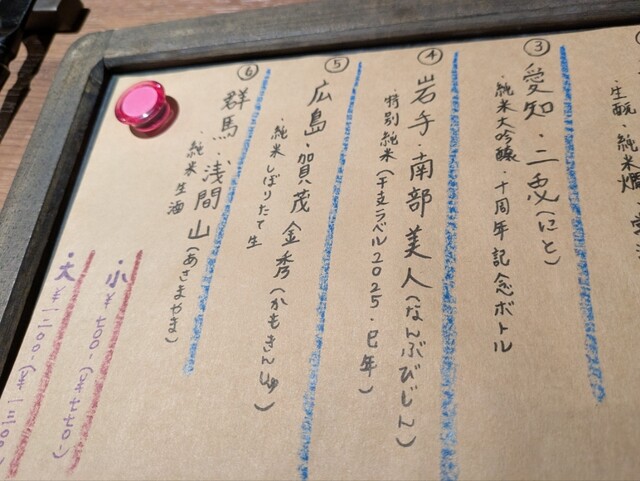 生酛 純米燗
③
愛知・二兎(にと)
・純米大吟醸・十周年記念ボトル
④
岩手・南部美人(なんぶびじん)
・特別純米(干支ラベル2025・巳年)
⑤
広島・賀茂金秀(かもきんしゅう)
・純米しぼりたて生
⑥
群馬 浅間山(あさまやま)
・純米生酒
・小
・大